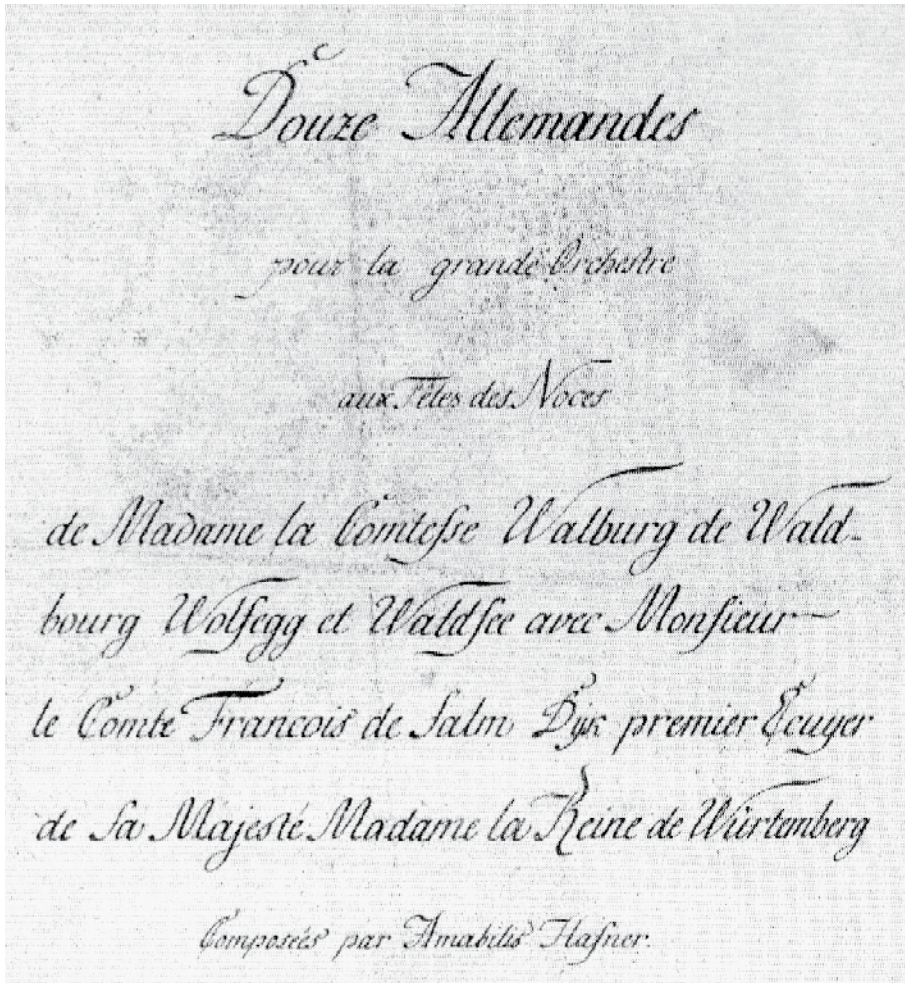 Douze Allemandes
pour la grande Orchestre
aux Fêtes des Noces
de Madame la Comtesse Walburg de Wald-
bourg Wolfegg et Waldsee avec Monsieur
le Comte Francois de Salm Dyk premier Ecuyer
de Sa Majesté Madame la Reine de Würtemberg
Composées par Amabilis Hafner.